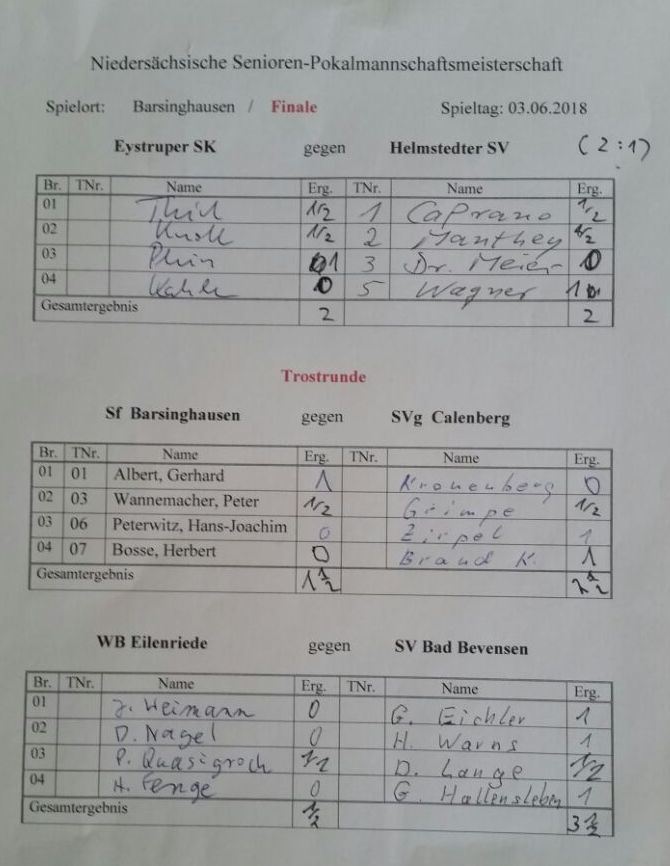 Niedersächsische Senioren-Pokalmannschaftsmeisterschaft
Spielort: Barsinghausen / Finale Spieltag: 03.06.2018
Eystruper SK gegen Helmstedter SV (2:1)
Br. TNr. Name Erg. TNr. Name Erg.
01 Thiel 1/2 1 Caprano 1/2
02 Knoll 1/2 2 Manthey 1/2
03 1 3 Dr. Meier 0
04 Kahle 0 5 Wagner 1
Gesamtergebnis 2 2
Trostrunde
Sf Barsinghausen gegen SVg Calenberg
Br. TNr. Name Erg. TNr. Name Erg.
01 01 Albert, Gerhard 1 Kronenberg 0
02 03 Wannemacher, Peter 1/2 Grimpe 1/2
03 06 Peterwitz, Hans-Joachim 0 Zirpel 1
04 07 Bosse, Herbert 0 Brand K. 1
Gesamtergebnis 1 1/2 2 1/2
WB Eilenriede gegen SV Bad Bevensen
Br. TNr. Name Erg. TNr. Name Erg.
01 J. Heimann 0 G. Eichler 1
02 D. Nagel 0 H. Warns 1
03 P. Quasigroch 1/2 D. Lange 1/2
04 H. Fenge 0 G. Hallensleben 1
Gesamtergebnis 1/2 3 1/2